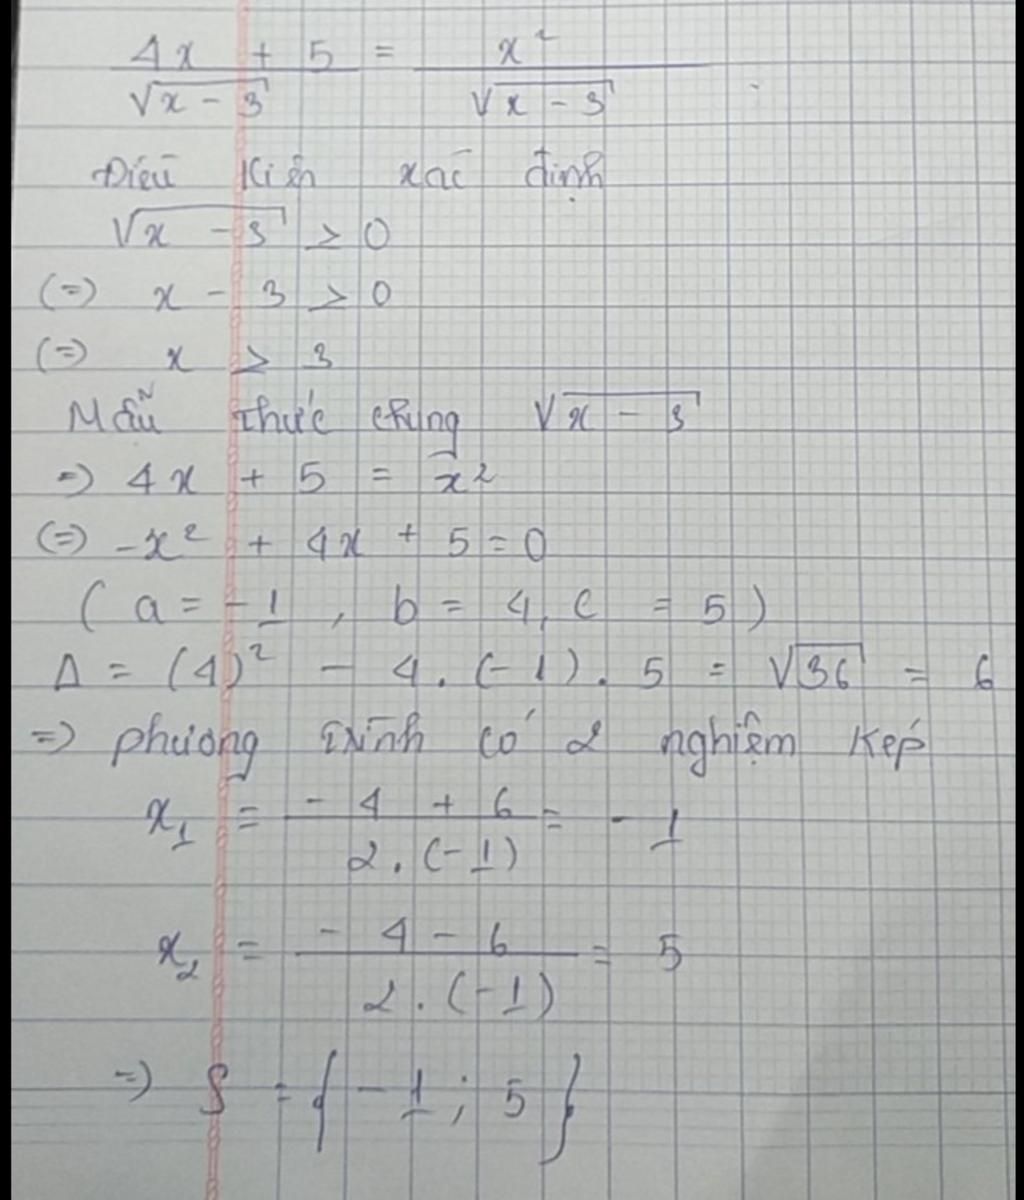 4x + 5 / √(x - 3) = x² / √(x - 3)
Điều kiện xác định
√(x - 3) > 0
(=) x - 3 > 0
(=) x > 3
Mẫu thức chung √(x - 3)
=> 4x + 5 = x²
(=) -x² + 4x + 5 = 0
( a = -1 , b = 4, c = 5 )
Δ = (4)² - 4. (-1) . 5 = √36 = 6
=> phương trình có 2 nghiệm kép
x₁ = - 4 + 6 / 2. (-1) = - 1
x₂ = - 4 - 6 / 2. (-1) = 5
=> S = { -1 ; 5 }